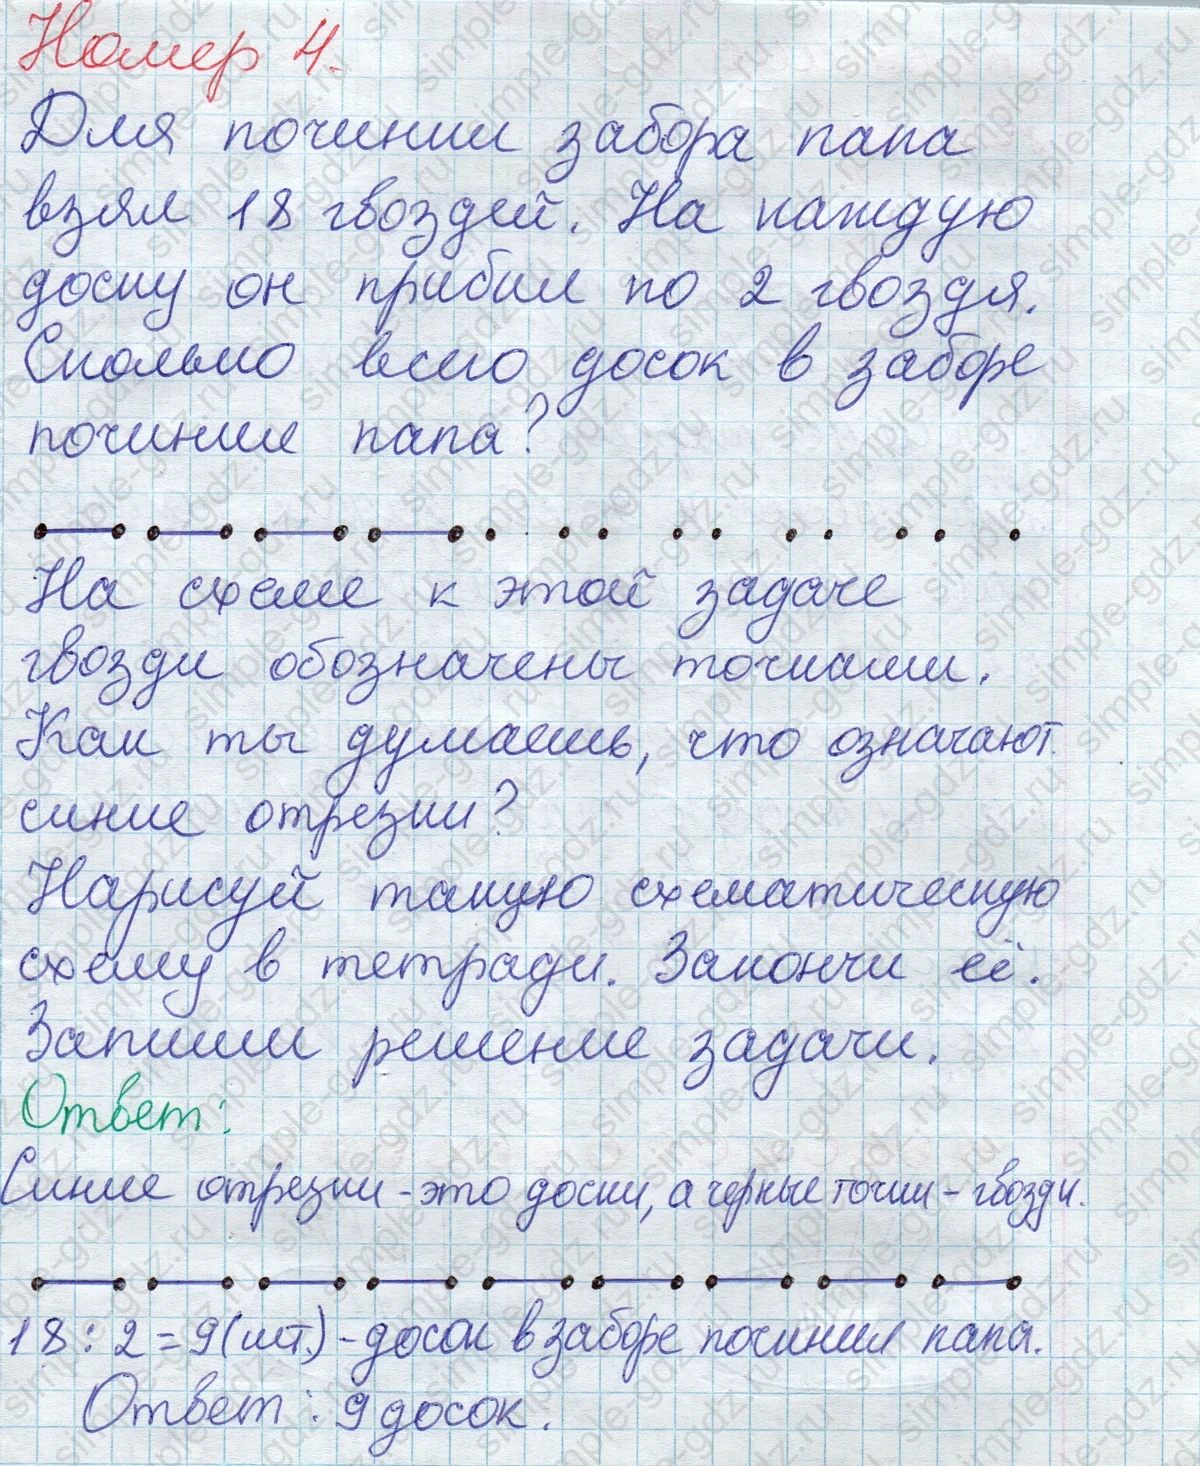 Номер 4.
Для починки забора папа
взял 18 гвоздей. На каждую
доску он прибил по 2 гвоздя.
Сколько всего досок в заборе
починил папа?
На схеме к этой задаче
гвозди обозначены точками.
Как ты думаешь, что означают
синие отрезки?
Нарисуй такую схематическую
схему в тетради. Закончи её.
Запиши решение задачи.
Ответ:
Синие отрезки - это доски, а черные точки - гвозди.
18 : 2 = 9 (шт.) - досок в заборе починил папа.
Ответ: 9 досок.
simple-gdz.ru